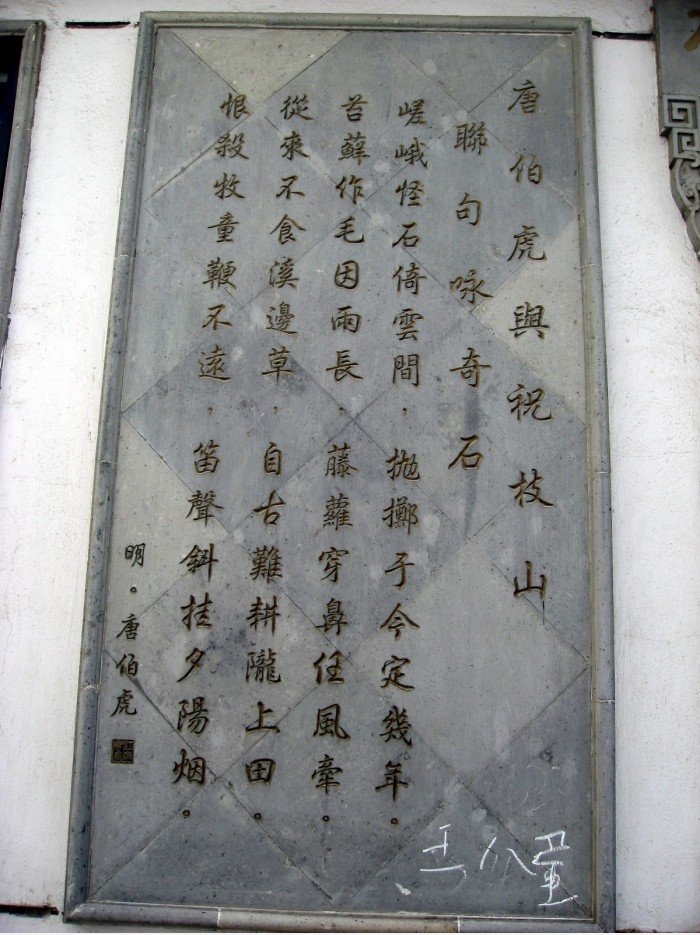 唐伯虎與祝枝山
聯句咏奇石
嵯峨怪石倚雲間，抛擲于今定幾年。
苔蘚作毛因雨長，藤蘿穿鼻任風牽。
從來不食溪邊草，自古難耕隴上田。
恨殺牧童鞭不遠，笛聲斜挂夕陽烟。
明。唐伯虎